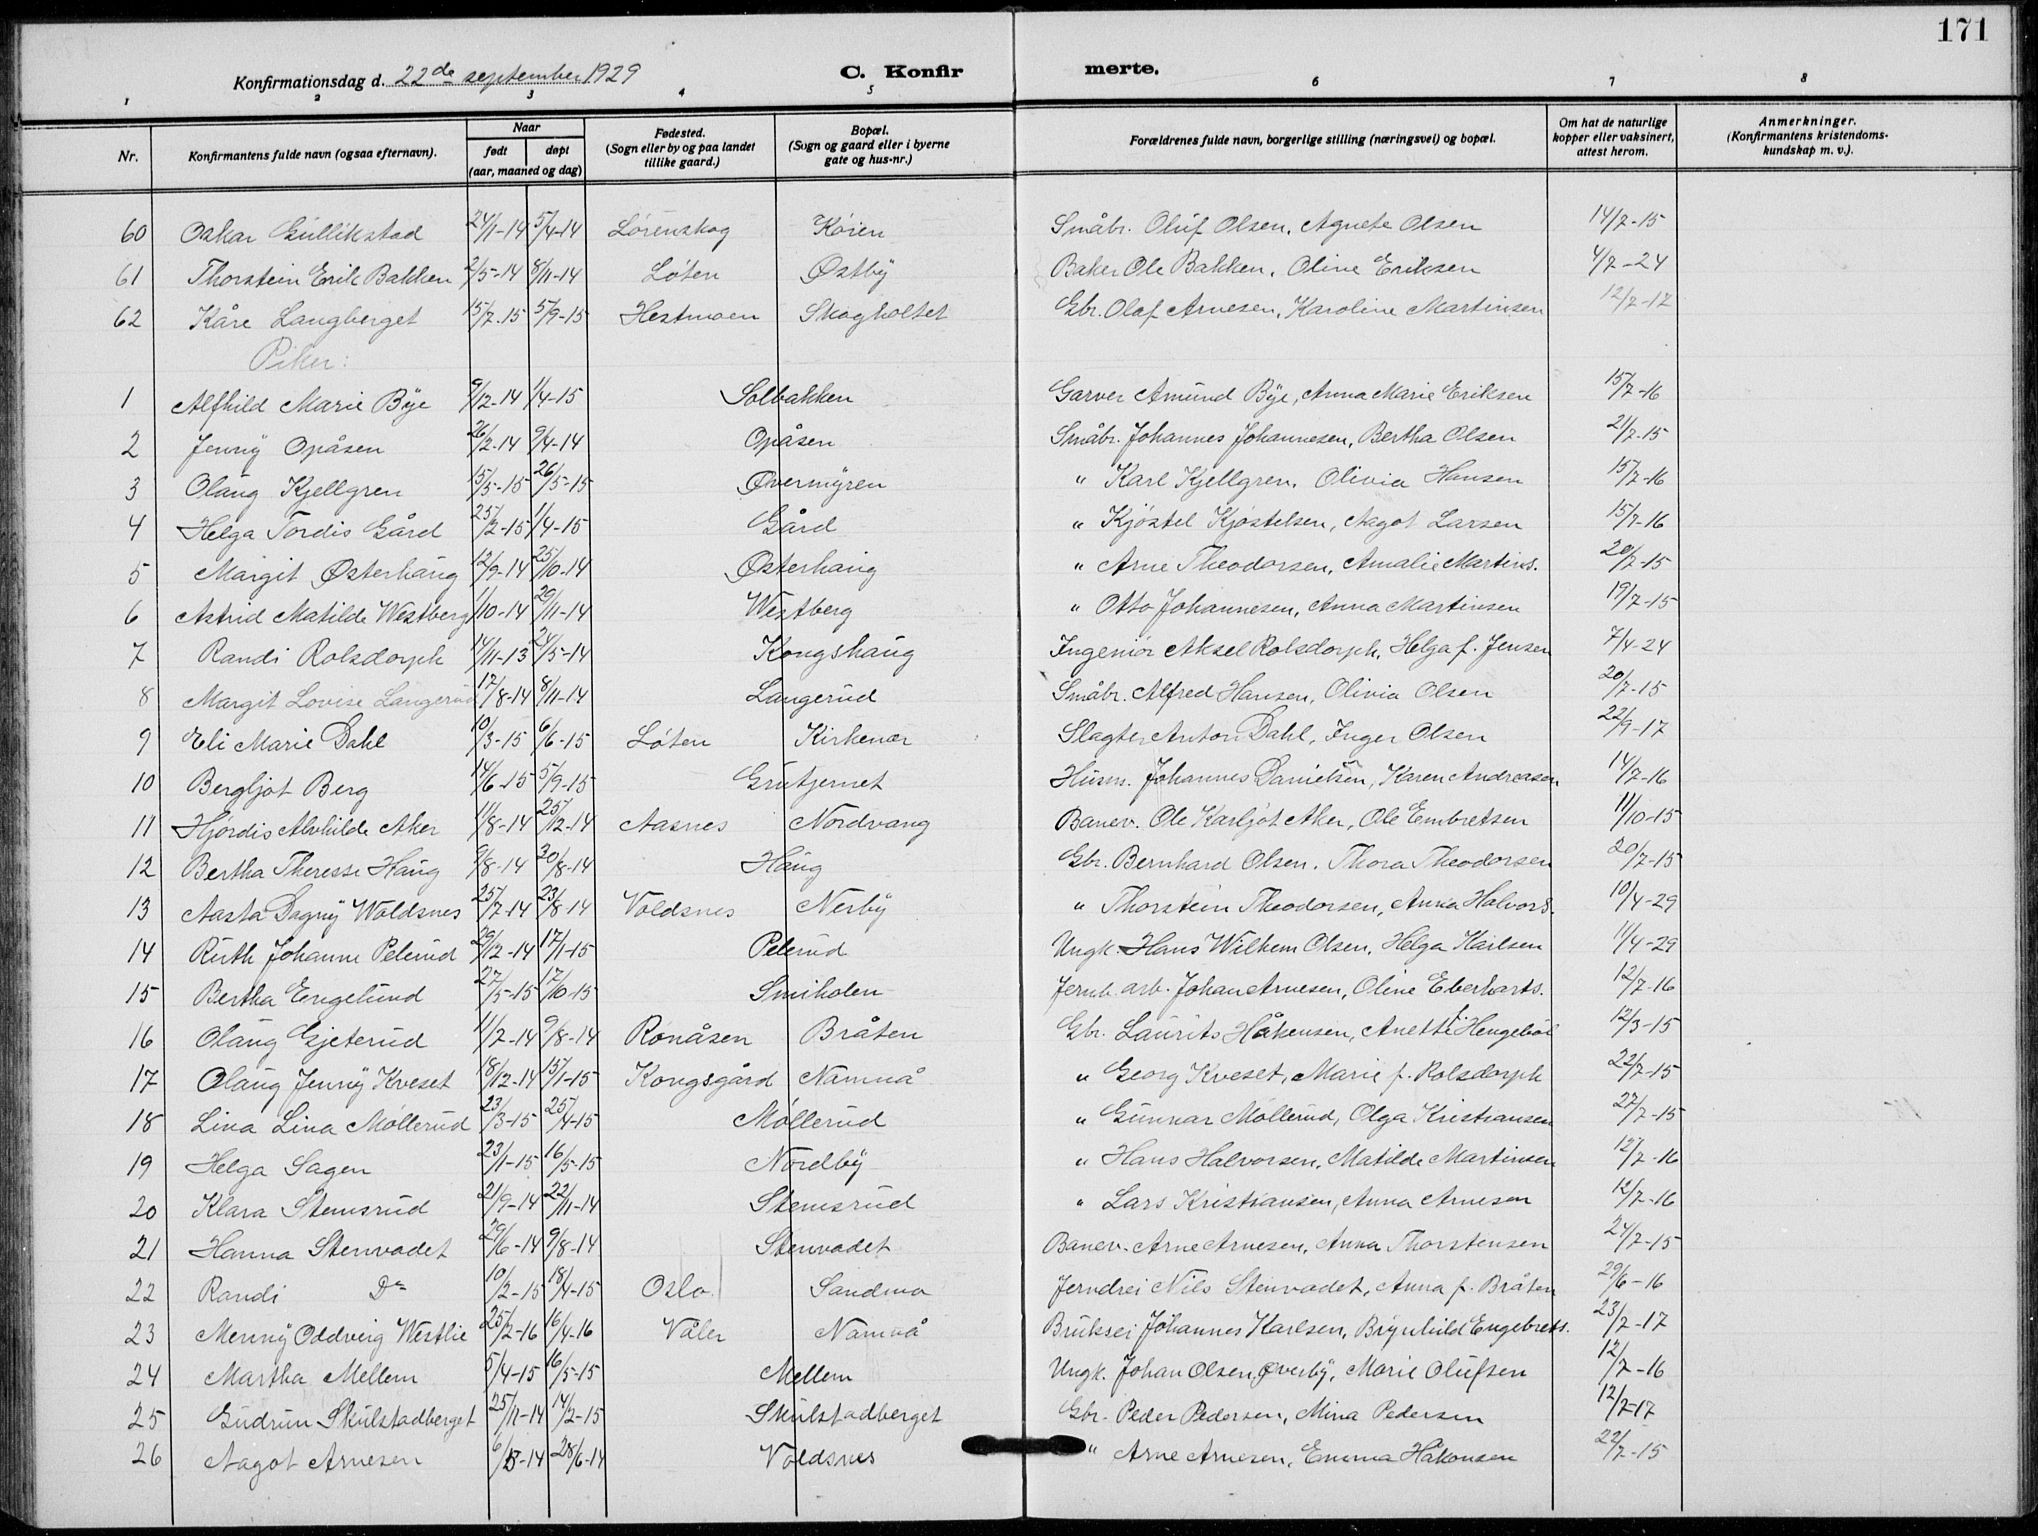 171
Konfirmationsdag d. 22de september 1929 C. Konfir merte.
1 2 3 4 5 6 7 8
Nr. Konfirmantens fulde navn (ogsaa efternavn). Naar født døpt (aar, maaned og dag) Fødested. (Sogn eller by og paa landet tillike gaard.) Bopæl. (Sogn og gaard eller i byerne gate og hus-nr.) Forældrenes fulde navn, borgerlige stilling (næringsvei) og bopæl. Om hat de naturlige kopper eller vaksinert, attest herom. Anmerkninger. (Konfirmantens kristendoms-kundskap m. v.).
60 Oskar Gullikstad 24/1-14 5/4-14 Lørenskog Køien Småbr. Oluf Olsen, Agnete Olsen 14/7-15
61 Thorstein Erik Bakken 2/5-14 8/11-14 Løten Østby Baker Ole Bakken, Oline Eriksen 4/7-24
62 Kåre Langberget 15/7-15 5/9-15 Hestmoen Skogholtet Gbr. Olaf Arnesen, Karoline Martinsen 12/7-17
Piker:
1 Alfhild Marie Bye 9/12-14 1/4-15 Solbakken Garver Amund Bye, Anna Marie Eriksen 15/7-16
2 Jenny Opåsen 26/2-14 9/4-14 Opåsen Småbr. Johannes Johannesen, Bertha Olsen 21/7-15
3 Olaug Kjellgren 15/5-15 26/5-15 Øvermyren " Karl Kjellgren, Olivia Hansen 15/7-16
4 Helga Tordis Gård 25/2-15 1/4-15 Gård " Kjøstel Kjøstelsen, Aagot Larsen 15/7-16
5 Margit Østerhaug 12/9-14 25/10-14 Østerhaug " Arne Theodorsen, Amalie Martins. 20/7-15
6 Astrid Matilde Westberg 1/10-14 29/11-14 Westberg " Otto Johannesen, Anna Martinsen 19/7-15
7 Randi Rolsdorph 14/11-13 24/5-14 Kongshaug Ingeniør Aksel Rolsdorph, Helga f. Jensen 7/4-24
8 Margit Lovise Langerud 17/8-14 8/11-14 Langerud Småbr. Alfred Hansen, Olivia Olsen 20/7-15
9 Eli Marie Dahl 10/3-15 6/6-15 Løten Kirkenær Slagter Anton Dahl, Inger Olsen 22/9-17
10 Bergljot Berg 14/6-15 5/9-15 Grutjernet Husm. Johannes Danielsen, Karen Andreasen 14/7-16
11 Hjørdis Alvhilde Aker 11/8-14 25/12-14 Aasnes Nordvang Banev. Ole Karljot Aker, Ole Embretsen 11/10-15
12 Bertha Theresse Haug 9/8-14 30/8-14 Haug Gbr. Bernhard Olsen, Thora Theodorsen 20/7-15
13 Aasta Dagny Woldsnes 25/7-14 23/8-14 Voldsnes Nerby " Thorstein Theodorsen, Anna Halvors. 10/4-29
14 Ruth Johanne Pelerud 29/12-14 17/1-15 Pelerud Ungk. Hans Wilhem Olsen, Helga Karlsen 11/4-29
15 Bertha Engelund 27/5-15 17/10-15 Smiholen Jernb. arb. Johan Arnesen, Oline Eberharts. 12/7-16
16 Olaug Gjeterud 11/2-14 9/8-14 Ronåsen Bråten Gbr. Laurits Håkensen, Anette f. Hengeböl 12/3-15
17 Olaug Jenny Kveset 18/12-14 15/1-15 Kongsgård Namnå " Georg Kveset, Marie f. Rolsdorph 22/7-15
18 Lina Lina Møllerud 23/3-15 25/4-15 Møllerud " Gunnar Møllerud, Olga Kristiansen 27/7-15
19 Helga Sagen 23/1-15 16/5-15 Nordby " Hans Halvorsen, Matilde Martinsen 12/7-16
20 Klara Stemsrud 21/9-14 22/11-14 Stemsrud " Lars Kristiansen, Anna Arnesen 12/7-16
21 Hanna Stenvadet 29/6-14 9/8-14 Stenvadet Banev. Arne Arnesen, Anna Thorstensen 24/7-15
22 Randi Do 10/2-15 18/4-15 Oslo Sandmo Jerndrei Nils Stenvadet, Anna f. Bråten 29/6-16
23 Menny Oddveig Westlie 25/2-16 16/4-16 Våler Namnå Bruksei Johannes Karlsen, Brynhild Engebrets. 23/7-17
24 Martha Mellem 5/4-15 16/5-15 Mellem Ungk. Johan Olsen Øverby, Marie Olufsen 12/7-16
25 Gudrun Skulstadberget 25/11-14 14/2-15 Skulstadberget Gbr. Peder Pedersen, Mina Pedersen 12/7-17
26 Aagot Arnesen 28/6-14 Voldsnes " Arne Arnesen, Emma Håkonsen 22/7-15